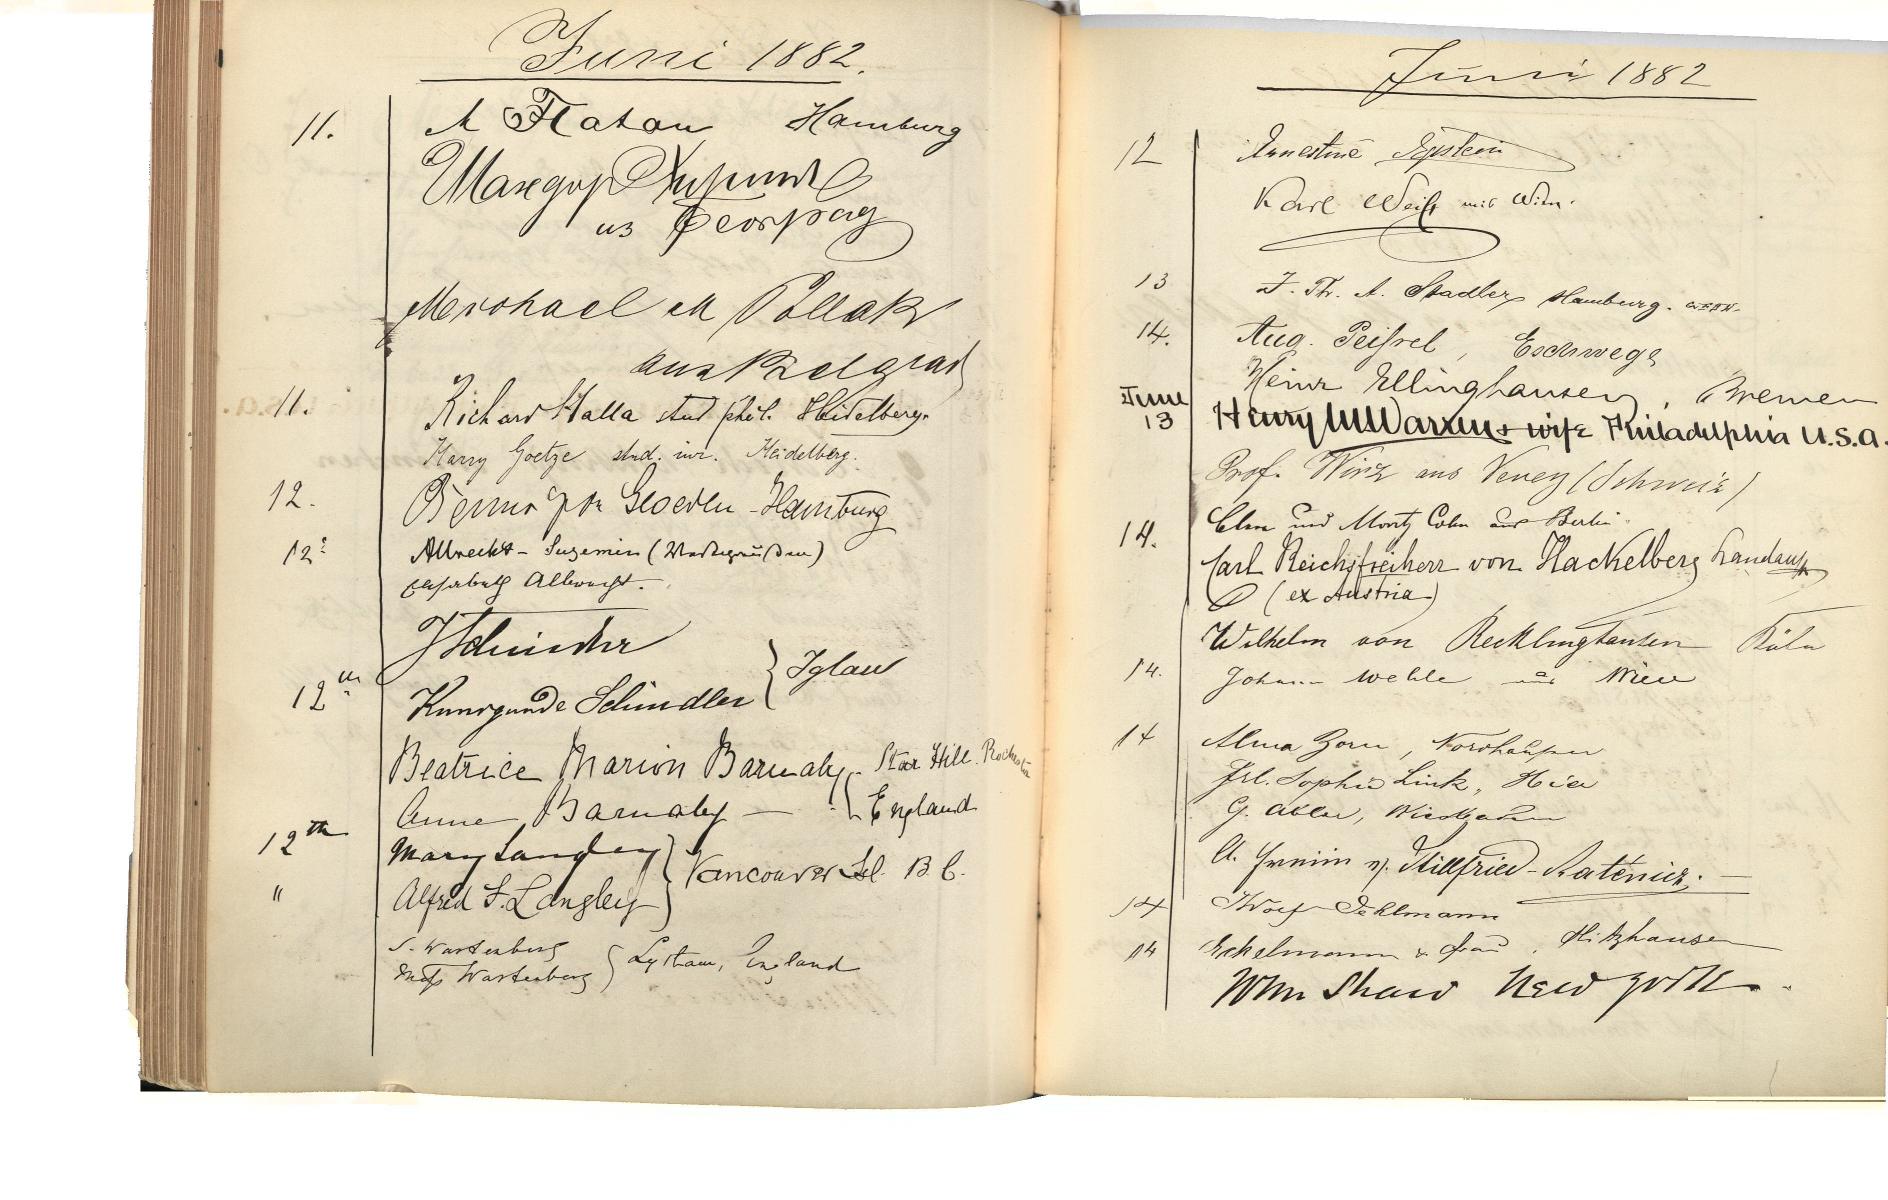 Juni 1882.
11. Hamburg
из Београд
M Pollak
aus Belgrad
11. Richard Halla stud phil. Heidelberg.
Harry Goetze stud. iur. Heidelberg.
12. von Gloeden - Hamburg
12
Albrecht.
Schindler
12 Kunigunde Schindler } Iglau
Beatrice Marion Barnaby. Star Hill. Rochester
Anne Barnaby — England
12th Mary Langley
" Alfred F. Langley } Vancouver Isl. B. C.
S. Wartenberg
Wartenberg } Lytham, England
Juni 1882
12 Ernestine Epstein
Karl Weiss Wien.
13 J. Th. A. Stadler Hamburg.
14. Aug. Peissel, Eschwege
Heinr Ellinghausen, Bremen
June 13 Henry M Warren & wife Philadelphia U.S.a.
Prof. Wirz aus Vevey (Schweiz)
14. und Moritz Cohn aus Berlin.
Carl Reichsfreiherr von Hackelberg Landau
(ex Austria)
Wilhelm von Recklinghausen Köln
14. Johann Wehle aus Wien
14 Alma Zorn, Nordhausen
Frl. Sophie Link, Hier
G. Adler, Wiesbaden
v. Stillfried - Ratenicz.
14
14 Eckelmann & Frau, Hitzhausen
Wm Shaw New York.